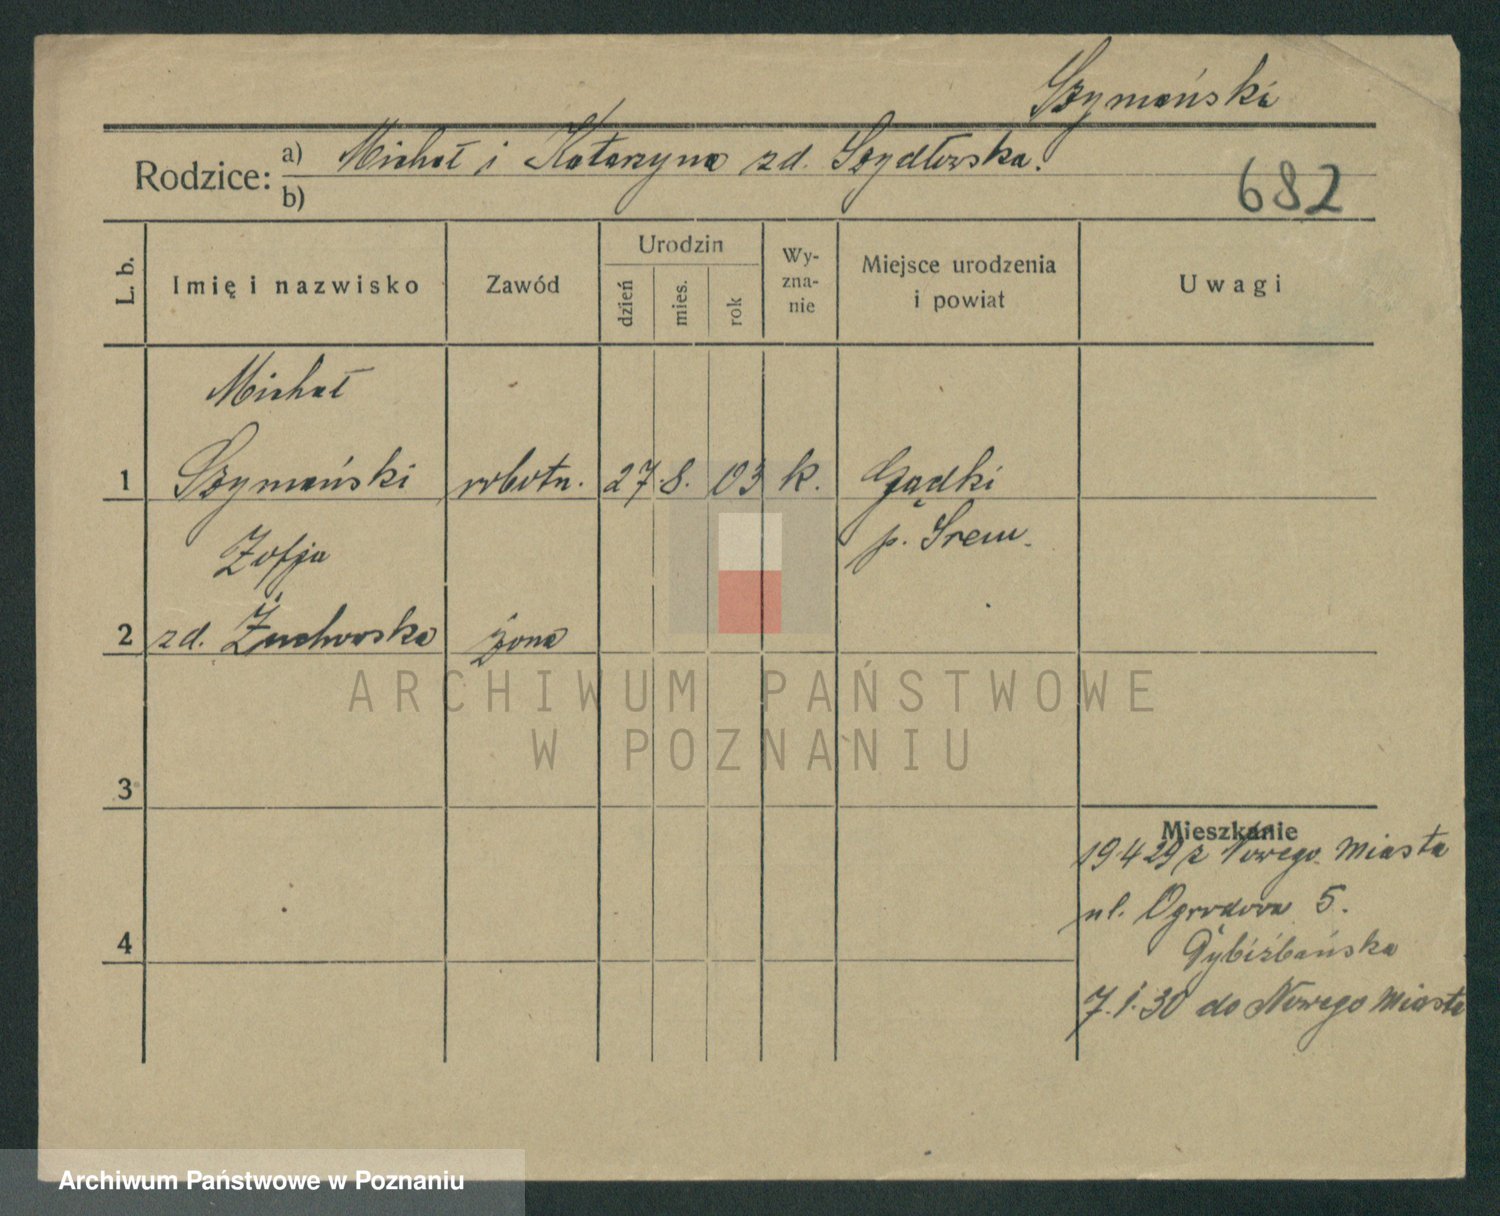 Szymański
Rodzice: a) Michał i Katarzyna zd. Szydłowska.
b)
682
L. b.
Imię i nazwisko
Zawód
Urodzin
dzień
mies.
rok
Wy-
zna-
nie
Miejsce urodzenia
i powiat
Uwagi
Michał
1 Szymański robotn. 27. 8. 03 k. Gądki
p. Śrem.
Zofja
2 zd. Żuchowska żona
3
4
Mieszkanie
19 4 29 z Nowego Miasta
ul. Ogrodowa 5.
7. 1. 30 do Nowego Miasta
ARCHIWUM PAŃSTWOWE
W POZNANIU
Archiwum Państwowe w Poznaniu